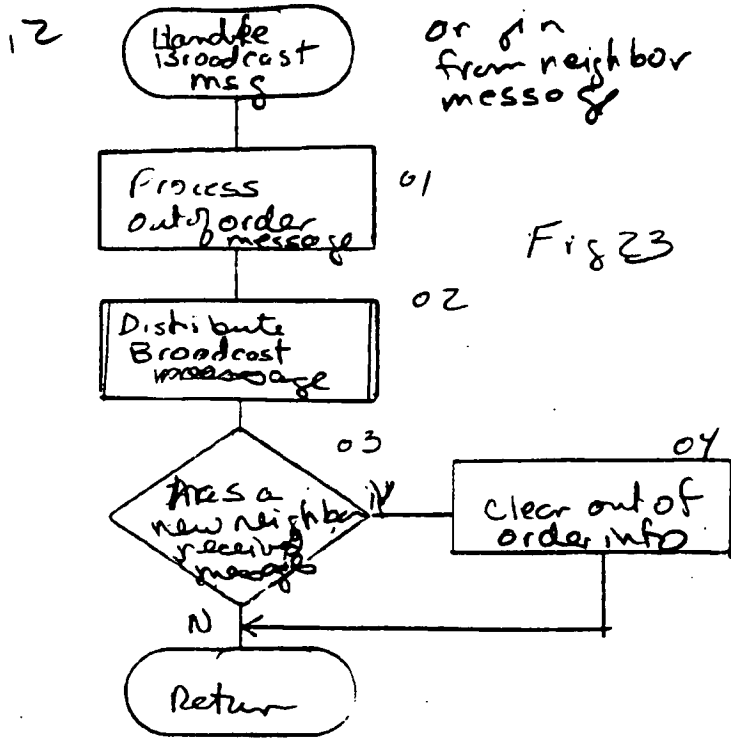 12
Handke
Broadcast
msg
from neighbor
message
Process
out of order
message
01
Fig 23
Distribute
Broadcast
message
02
Has a
new neighbor
received
message
03
N
Clear out of
order info
04
N
Return